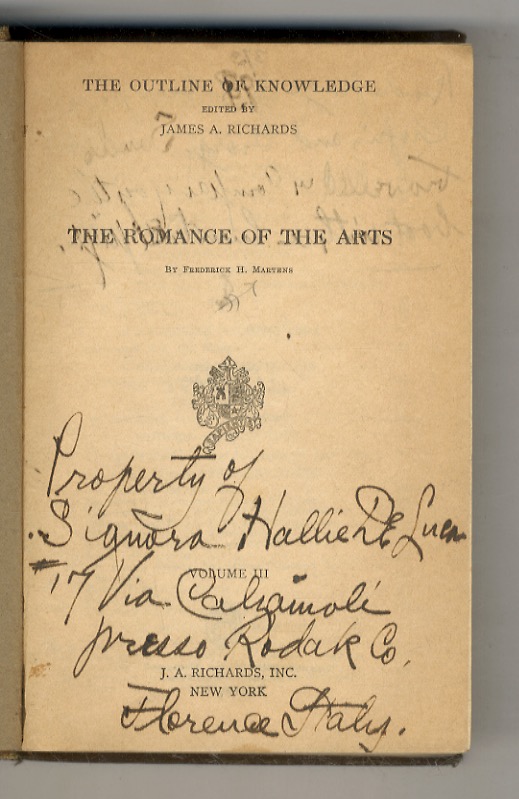 THE OUTLINE OF KNOWLEDGE
EDITED BY
JAMES A. RICHARDS
THE ROMANCE OF THE ARTS
BY FREDERICK H. MARTENS
Property of
Signora Hallie De Luca
VOLUME III
#17 Via Calzaiuoli
presso Kodak Co.
J. A. RICHARDS, INC.
NEW YORK
Florence Italy.